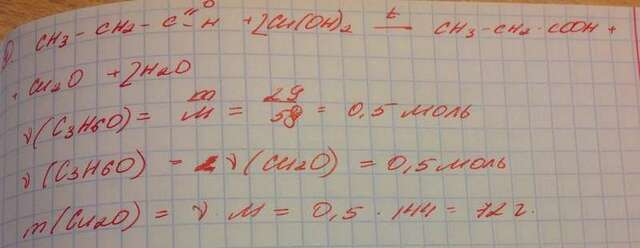 CH3 - CH2 - C=O H + 2Cu(OH)2 t CH3 - CH2 - COOH +
+ Cu2O + 2H2O
ν(C3H6O) = m/M = 29/58 = 0,5 моль
ν(C3H6O) = ν(Cu2O) = 0,5 моль
m(Cu2O) = ν · M = 0,5 · 144 = 72 г.